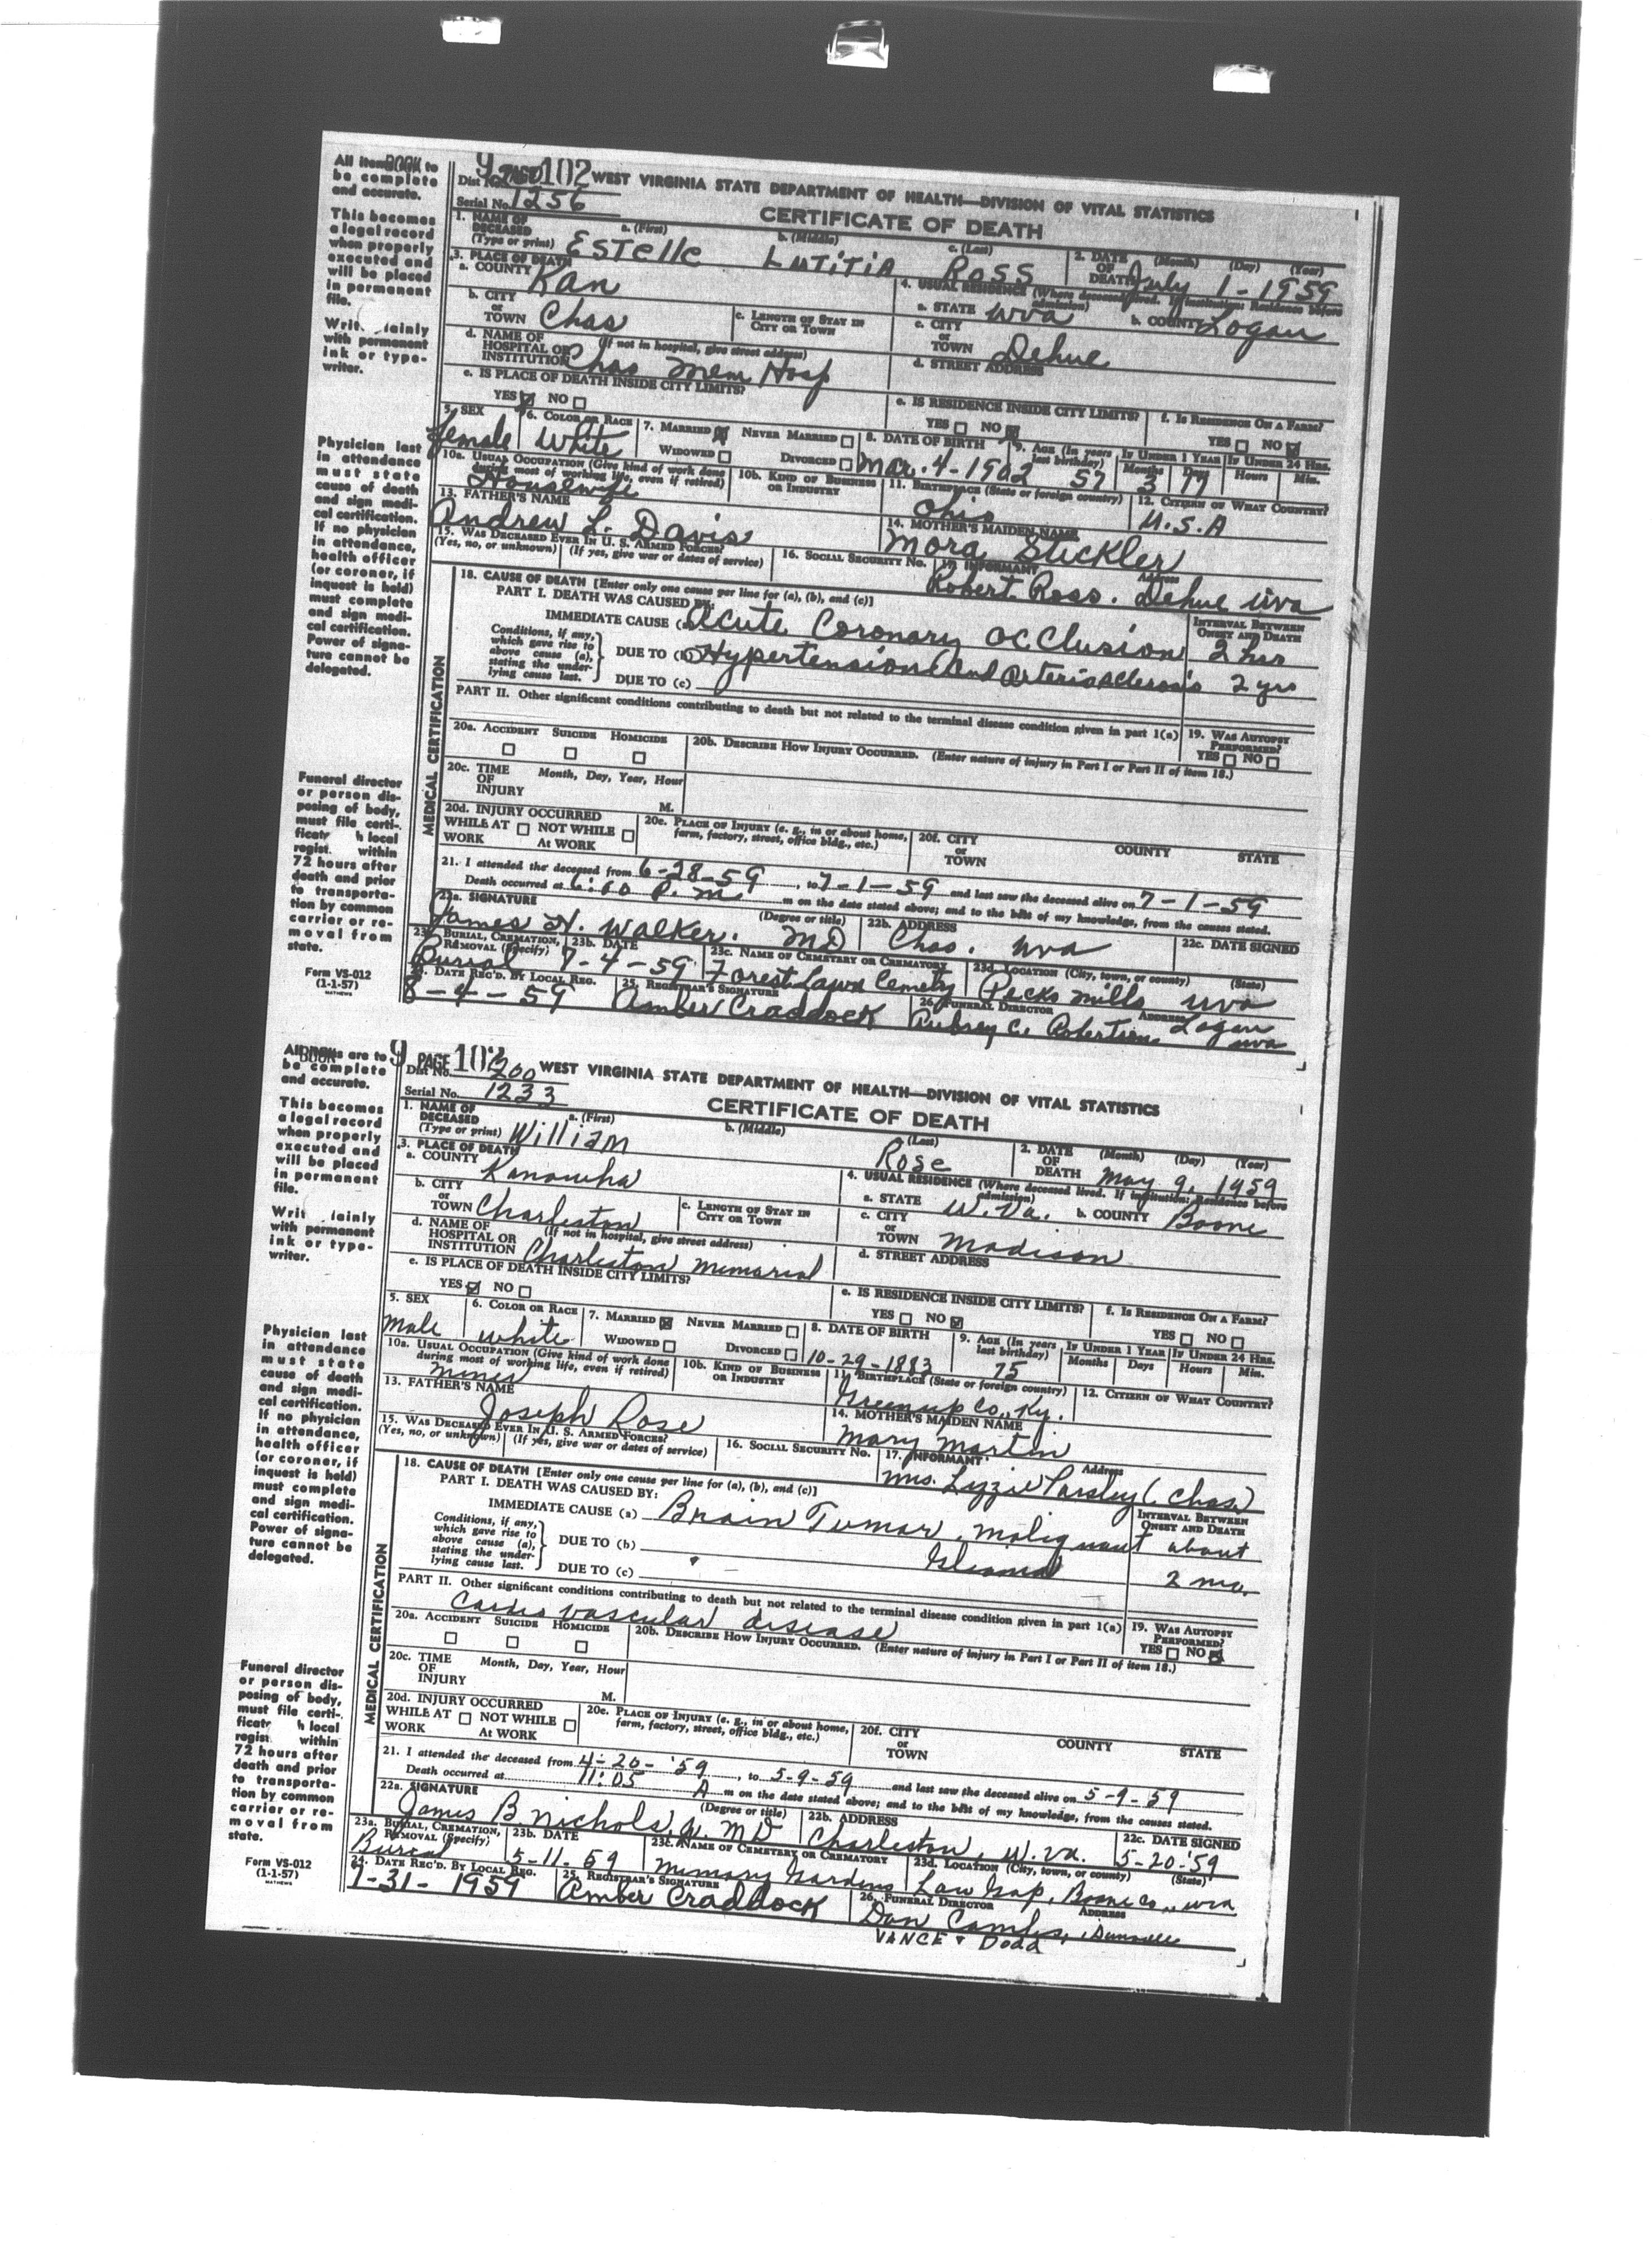 All items are to
be complete
and accurate.
This becomes
a legal record
when properly
executed and
will be placed
in permanent
file.
lainly
with permanent
ink or type-
writer.
Physician last
in attendance
must state
cause of death
and sign medi-
cal certification.
If no physician
in attendance,
health officer
(or coroner, if
inquest is held)
must complete
and sign medi-
cal certification.
Power of signa-
ture cannot be
delegated.
Funeral director
or person dis-
posing of body,
must file certi-
h local
within
72 hours after
death and prior
to transporta-
tion by common
carrier or re-
moval from
state.
Form VS-012
(1-1-57)
MATHEWS
BOOK 9 PAGE 102
WEST VIRGINIA STATE DEPARTMENT OF HEALTH—DIVISION OF VITAL STATISTICS
Serial No. 1256 CERTIFICATE OF DEATH
1. NAME OF DECEASED (Type or print) a. (First) Estelle b. (Middle) Lutitia c. (Last) Ross 2. DATE OF DEATH (Month) (Day) (Year) July 1-1959
3. PLACE OF DEATH a. COUNTY Kan 4. USUAL RESIDENCE (Where deceased lived. If institution: Residence before admission)
a. STATE WVa b. COUNTY Logan
b. CITY or TOWN Chas c. LENGTH OF STAY IN CITY OR TOWN c. CITY or TOWN Dehue
d. NAME OF HOSPITAL OR INSTITUTION (If not in hospital, give street address) Chas Mem Hosp d. STREET ADDRESS
e. IS PLACE OF DEATH INSIDE CITY LIMITS? YES NO e. IS RESIDENCE INSIDE CITY LIMITS? YES NO f. IS RESIDENCE ON A FARM? YES NO
5. SEX female 6. COLOR OR RACE White 7. MARRIED NEVER MARRIED WIDOWED DIVORCED 8. DATE OF BIRTH Mar. 4-1902 9. AGE (In years last birthday) 57 IF UNDER 1 YEAR Months 3 Days IF UNDER 24 HRS. Hours Min.
10a. USUAL OCCUPATION (Give kind of work done during most of working life, even if retired) Housewife 10b. KIND OF BUSINESS OR INDUSTRY 11. BIRTHPLACE (State or foreign country) Ohio 12. CITIZEN OF WHAT COUNTRY? U.S.A
13. FATHER'S NAME Andrew L. Davis 14. MOTHER'S MAIDEN NAME Mora Stickler
15. WAS DECEASED EVER IN U. S. ARMED FORCES? (Yes, no, or unknown) (If yes, give war or dates of service) 16. SOCIAL SECURITY NO. 17. INFORMANT Address Robert Ross. Dehue WVa
MEDICAL CERTIFICATION
18. CAUSE OF DEATH [Enter only one cause per line for (a), (b), and (c)] INTERVAL BETWEEN ONSET AND DEATH
PART I. DEATH WAS CAUSED BY:
IMMEDIATE CAUSE (a) Acute Coronary Occlusion 2 hrs
Conditions, if any, which gave rise to above cause (a), stating the underlying cause last.
DUE TO (b) Hypertension and Arteriosclerosis 2 yrs
DUE TO (c)
PART II. Other significant conditions contributing to death but not related to the terminal disease condition given in part 1(a) 19. WAS AUTOPSY PERFORMED? YES NO
20a. ACCIDENT SUICIDE HOMICIDE 20b. DESCRIBE HOW INJURY OCCURRED. (Enter nature of injury in Part I or Part II of item 18.)
20c. TIME OF INJURY Month, Day, Year, Hour M.
20d. INJURY OCCURRED WHILE AT WORK NOT WHILE AT WORK 20e. PLACE OF INJURY (e. g., in or about home, farm, factory, street, office bldg., etc.) 20f. CITY or TOWN COUNTY STATE
21. I attended the deceased from 6-28-59, to 7-1-59 and last saw the deceased alive on 7-1-59
Death occurred at P. m. m on the date stated above; and to the best of my knowledge, from the causes stated.
22a. SIGNATURE (Degree or title) James H. Walker. MD 22b. ADDRESS Chas. WVa 22c. DATE SIGNED
23a. BURIAL, CREMATION, REMOVAL (Specify) Burial 23b. DATE 7-4-59 23c. NAME OF CEMETERY OR CREMATORY Forest Lawn Cemetry 23d. LOCATION (City, town, or county) (State) Pecks Mills WVa
24. DATE REC'D. BY LOCAL REG. 8-4-59 25. REGISTRAR'S SIGNATURE Amber Craddock 26. FUNERAL DIRECTOR ADDRESS Aubrey C. Robertson Logan WVa
All items are to
be complete
and accurate.
This becomes
a legal record
when properly
executed and
will be placed
in permanent
file.
lainly
with permanent
ink or type-
writer.
Physician last
in attendance
must state
cause of death
and sign medi-
cal certification.
If no physician
in attendance,
health officer
(or coroner, if
inquest is held)
must complete
and sign medi-
cal certification.
Power of signa-
ture cannot be
delegated.
Funeral director
or person dis-
posing of body,
must file certi-
h local
within
72 hours after
death and prior
to transporta-
tion by common
carrier or re-
moval from
state.
Form VS-012
(1-1-57)
MATHEWS
BOOK 9 PAGE 102
Dist No. 200 WEST VIRGINIA STATE DEPARTMENT OF HEALTH—DIVISION OF VITAL STATISTICS
Serial No. 1233 CERTIFICATE OF DEATH
1. NAME OF DECEASED (Type or print) a. (First) William b. (Middle) (Last) Rose 2. DATE OF DEATH (Month) (Day) (Year) May 9, 1959
3. PLACE OF DEATH a. COUNTY Kanawha 4. USUAL RESIDENCE (Where deceased lived. If institution: Residence before admission)
a. STATE W.Va. b. COUNTY Boone
b. CITY or TOWN Charleston c. LENGTH OF STAY IN CITY OR TOWN c. CITY or TOWN Madison
d. NAME OF HOSPITAL OR INSTITUTION (If not in hospital, give street address) Charleston Memorial d. STREET ADDRESS
e. IS PLACE OF DEATH INSIDE CITY LIMITS? YES NO e. IS RESIDENCE INSIDE CITY LIMITS? YES NO f. IS RESIDENCE ON A FARM? YES NO
5. SEX Male 6. COLOR OR RACE white 7. MARRIED NEVER MARRIED WIDOWED DIVORCED 8. DATE OF BIRTH 10-29-1883 9. AGE (In years last birthday) 75 IF UNDER 1 YEAR Months Days IF UNDER 24 HRS. Hours Min.
10a. USUAL OCCUPATION (Give kind of work done during most of working life, even if retired) Miner 10b. KIND OF BUSINESS OR INDUSTRY 11. BIRTHPLACE (State or foreign country) Greenup Co., Ky. 12. CITIZEN OF WHAT COUNTRY?
13. FATHER'S NAME Joseph Rose 14. MOTHER'S MAIDEN NAME Mary Martin
15. WAS DECEASED EVER IN U. S. ARMED FORCES? (Yes, no, or unknown) (If yes, give war or dates of service) 16. SOCIAL SECURITY NO. 17. INFORMANT Address Mrs. Lizzie Parsley (Chas.)
MEDICAL CERTIFICATION
18. CAUSE OF DEATH [Enter only one cause per line for (a), (b), and (c)] INTERVAL BETWEEN ONSET AND DEATH
PART I. DEATH WAS CAUSED BY:
IMMEDIATE CAUSE (a) Brain Tumor, malignant about
Conditions, if any, which gave rise to above cause (a), stating the underlying cause last.
DUE TO (b) 2 mo.
DUE TO (c)
PART II. Other significant conditions contributing to death but not related to the terminal disease condition given in part 1(a) 19. WAS AUTOPSY PERFORMED? YES NO
Cardio vascular disease
20a. ACCIDENT SUICIDE HOMICIDE 20b. DESCRIBE HOW INJURY OCCURRED. (Enter nature of injury in Part I or Part II of item 18.)
20c. TIME OF INJURY Month, Day, Year, Hour M.
20d. INJURY OCCURRED WHILE AT WORK NOT WHILE AT WORK 20e. PLACE OF INJURY (e. g., in or about home, farm, factory, street, office bldg., etc.) 20f. CITY or TOWN COUNTY STATE
21. I attended the deceased from 4-20-'59, to 5-9-59 and last saw the deceased alive on 5-9-59
Death occurred at 11:05 A m on the date stated above; and to the best of my knowledge, from the causes stated.
22a. SIGNATURE (Degree or title) James B. Nichols, Jr. MD 22b. ADDRESS Charleston, W.Va. 22c. DATE SIGNED 5-20-'59
23a. BURIAL, CREMATION, REMOVAL (Specify) Burial 23b. DATE 5-11-59 23c. NAME OF CEMETERY OR CREMATORY Memory Gardens 23d. LOCATION (City, town, or county) (State) Low Gap, Boone Co., WVa
24. DATE REC'D. BY LOCAL REG. 7-31-1959 25. REGISTRAR'S SIGNATURE Amber Craddock 26. FUNERAL DIRECTOR ADDRESS Dan
VANCE & Dodd